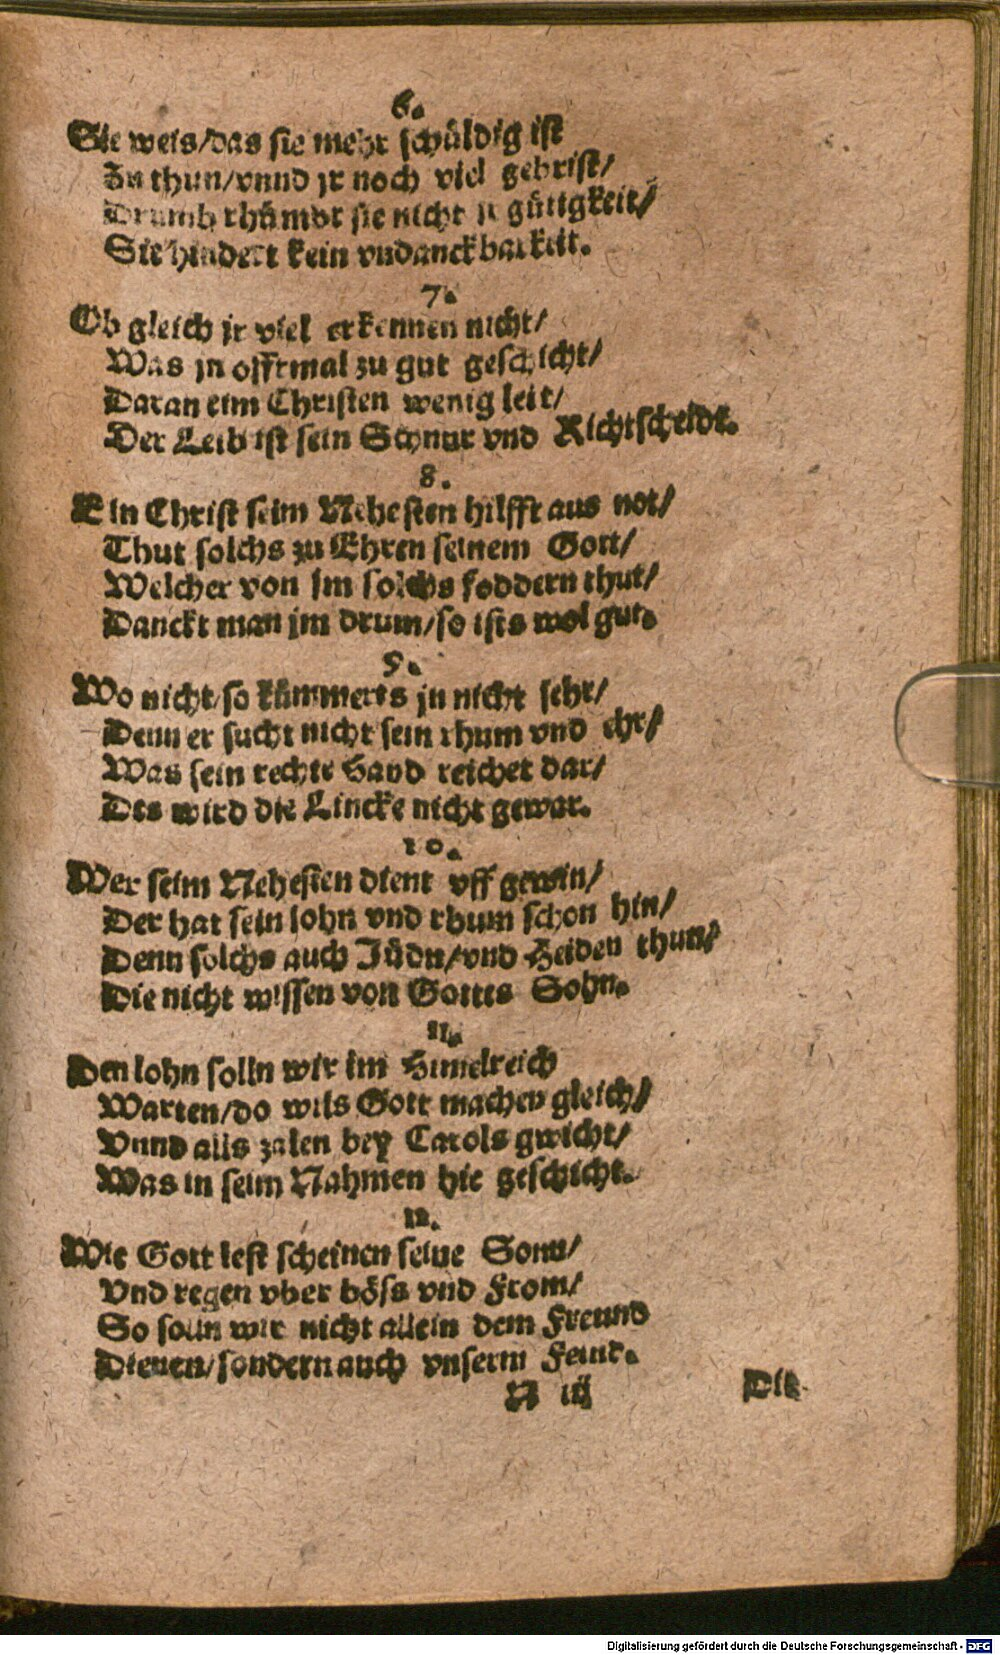 6.
Sie weis/das sie mehr schüldig ist
Zu thun/vnnd jr noch viel gebrist/
Drumb rhümbt sie nicht jr gütigkeit/
Sie hindert kein vndanckbarkeit.
7.
Ob gleich jr viel erkennen nicht/
Was jn offtmal zu gut geschicht/
Daran eim Christen wenig leit/
Der Leib ist sein Schnur vnd Richtscheidt.
8.
Ein Christ seim Nehesten hilfft aus not/
Thut solchs zu Ehren seinem Gott/
Welcher von im solchs foddern thut/
Danckt man jm drum/so ists wol gut.
9.
Wo nicht/so kümmerts jn nicht sehr/
Denn er sucht nicht sein rhum vnd ehr/
Was sein rechte Hand reichet dar/
Des wird die Lincke nicht gewar.
10.
Wer seim Nehesten dient vff gewin/
Der hat sein lohn vnd rhum schon hin/
Denn solchs auch Jüdn/vnd Heiden thun/
Die nicht wissen von Gottes Sohn.
11.
Den lohn solln wir im Himelreich
Warten/do wils Gott machen gleich/
Vnnd alls zalen bey Carols gwicht/
Was in seim Nahmen hie geschicht.
12.
Wie Gott lest scheinen seine Sonn/
Vnd regen vber böss vnd From/
So solln wir nicht allein dem Freund
Dienen/sondern auch vnserm Feind.
N iij
Die
Digitalisierung gefördert durch die Deutsche Forschungsgemeinschaft - DFG